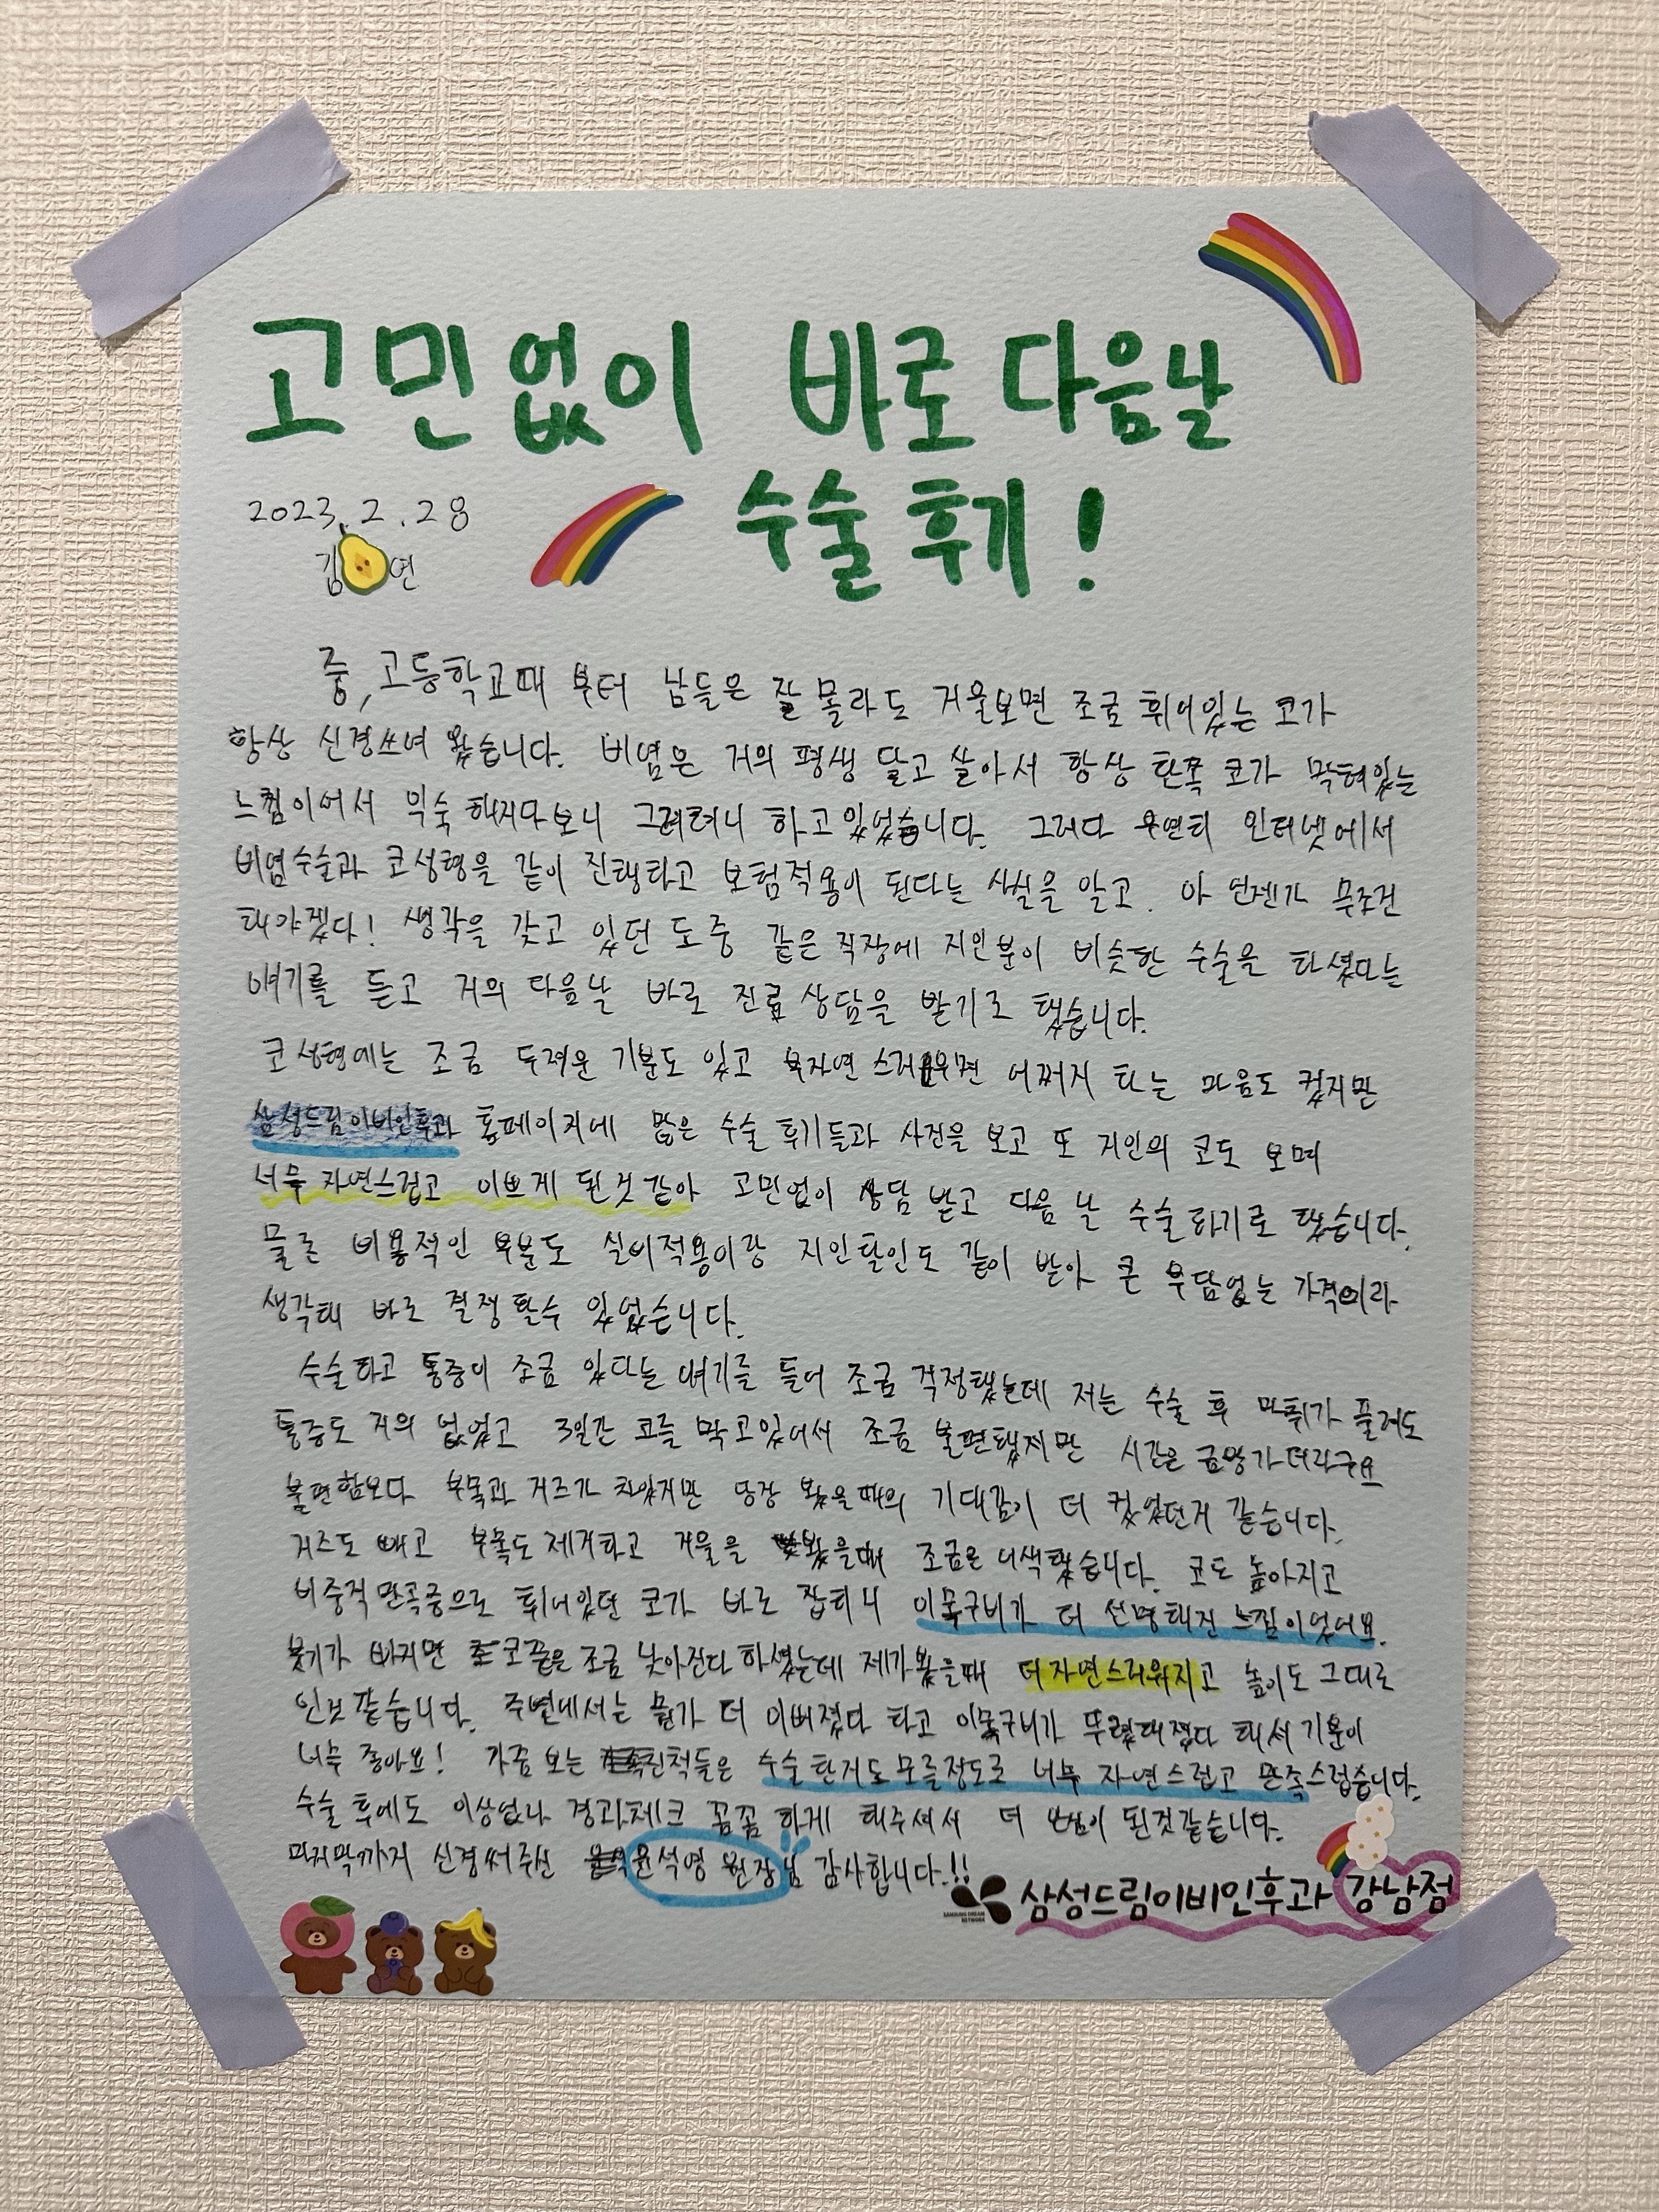 고민없이 바로 다음날
수술 후기!
2023.2.28
김 연
중,고등학교때 부터 남들은 잘 몰라도 거울보면 조금 휘어있는 코가
항상 신경쓰여 왔습니다. 비염은 거의 평생 달고 살아서 항상 한쪽 코가 막혀있는
느낌이어서 익숙해지다보니 그려려니 하고있었습니다. 그러다 우연히 인터넷에서
비염수술과 코성형을 같이 진행하고 보험적용이 된다는 사실을 알고. 아 언젠가 무조건
해야겠다! 생각을 갖고 있던 도중 같은 직장에 지인분이 비슷한 수술을 하셨다는
얘기를 듣고 거의 다음날 바로 진료 상담을 받기로 했습니다.
코성형에는 조금 두려운 기분도 있고 부자연스러우면 어쩌지 하는 마음도 컸지만
삼성드림이비인후과 홈페이지에 많은 수술 후기들과 사진을 보고 또 지인의 코도 보며
너무 자연스럽고 이쁘게 된것 같아 고민없이 상담 받고 다음 날 수술하기로 했습니다.
물론 비용적인 부분도 실비적용이랑 지인할인도 같이 받아 큰 부담없는 가격이라
생각해 바로 결정할수 있었습니다.
수술하고 통증이 조금 있다는 얘기를 들어 조금 걱정했는데 저는 수술 후 마취가 풀려도
통증도 거의 없었고 3일간 코를 막고있어서 조금 불편했지만 시간은 금방가더라구요
불편함보다 부목과 거즈가 차있지만 당장 봤을때의 기대감이 더 컸었던거 같습니다.
거즈도 빼고 부목도 제거하고 거울을 봤을때 조금은 어색했습니다. 코도 높아지고
비중격만곡증으로 휘어있던 코가 바로 잡히니 이목구비가 더 선명해진 느낌이었어요.
붓기가 빠지면 코끝은 조금 낮아진다 하셨는데 제가봤을때 더 자연스러워지고 높이도 그대로
인거같습니다. 주변에서는 뭔가 더 이뻐졌다 하고 이목구비가 뚜렷해졌다 해서 기분이
너무 좋아요! 가끔 보는 친척들은 수술한거도 모를정도로 너무 자연스럽고 만족스럽습니다.
수술 후에도 이상없나 경과체크 꼼꼼하게 해주셔서 더 안심이 된것같습니다.
마지막까지 신경써주신 윤석영 원장님 감사합니다.!!
SAMSUNG DREAM NETWORK 삼성드림이비인후과 강남점